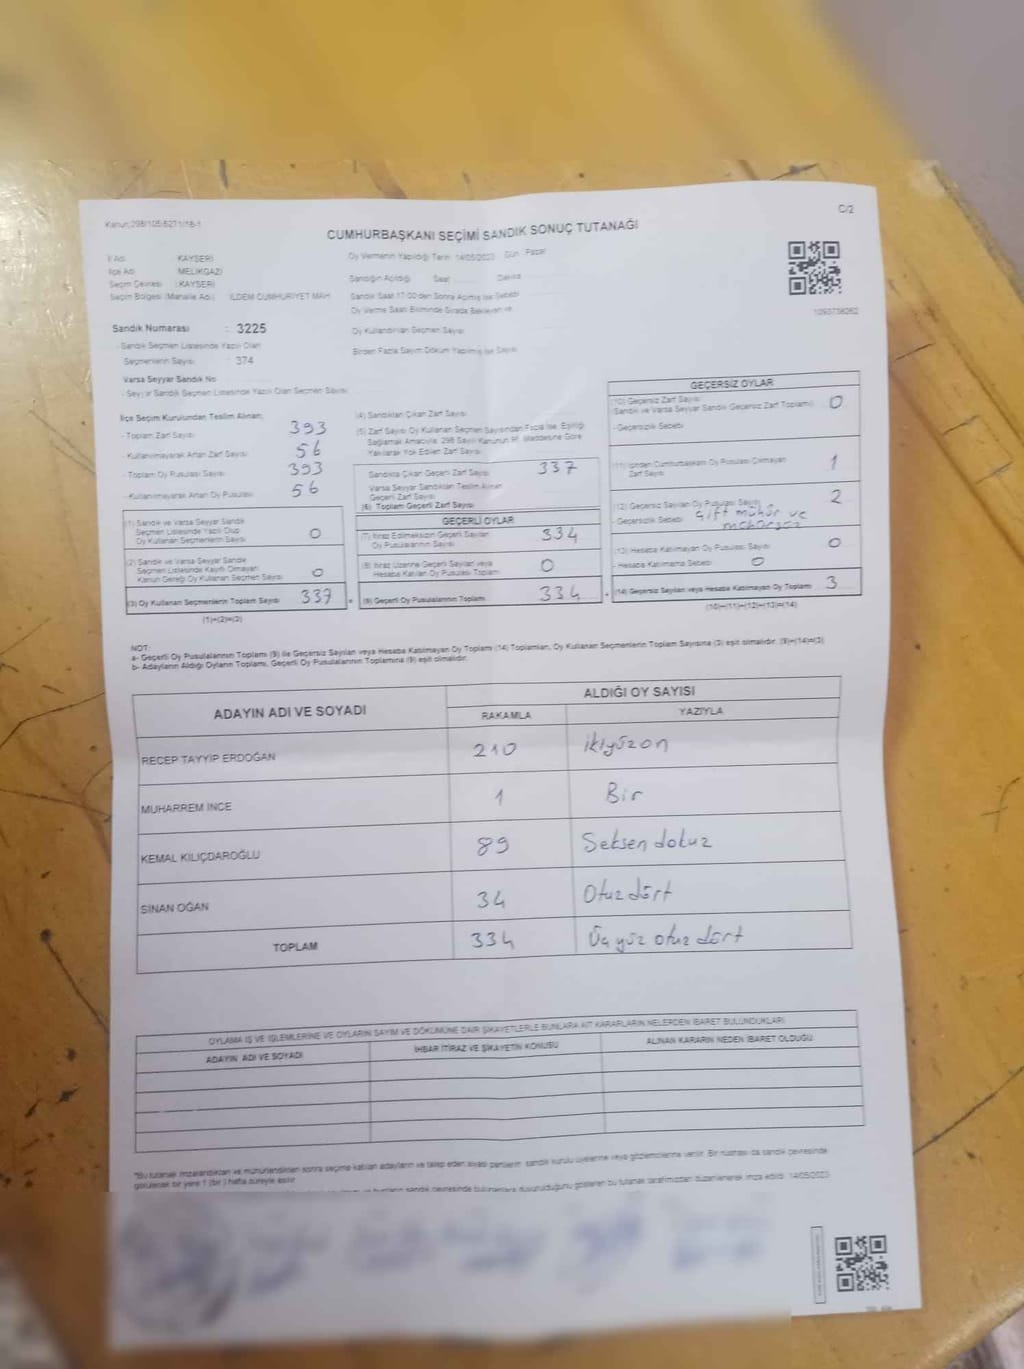 Kanun:298/105;6271/18-1
C/2
CUMHURBAŞKANI SEÇİMİ SANDIK SONUÇ TUTANAĞI
İl Adı : KAYSERİ
İlçe Adı : MELİKGAZİ
Seçim Çevresi : KAYSERİ
Seçim Bölgesi (Mahalle Adı) : İLDEM CUMHURİYET MAH.
Oy Vermenin Yapıldığı Tarih: 14/05/2023 Gün: Pazar
Sandığın Açıldığı Saat: Dakika
Sandık Saat 17:00'den Sonra Açılmış İse Sebebi
Oy Verme Saati Bitiminde Sırada Bekleyen ve
Oy Kullandırılan Seçmen Sayısı
Birden Fazla Sayım Döküm Yapılmış İse Sayısı
1093738262
Sandık Numarası : 3225
- Sandık Seçmen Listesinde Yazılı Olan
Seçmenlerin Sayısı : 374
Varsa Seyyar Sandık No
- Seyyar Sandık Seçmen Listesinde Yazılı Olan Seçmen Sayısı
İlçe Seçim Kurulundan Teslim Alınan;
- Toplam Zarf Sayısı 393
- Kullanılmayarak Artan Zarf Sayısı 56
- Toplam Oy Pusulası Sayısı 393
- Kullanılmayarak Artan Oy Pusulası 56
(1) Sandık ve Varsa Seyyar Sandık
Seçmen Listesinde Yazılı Olup
Oy Kullanan Seçmenlerin Sayısı 0
(2) Sandık ve Varsa Seyyar Sandık
Seçmen Listesinde Kayıtlı Olmayan
Kanun Gereği Oy Kullanan Seçmen Sayısı 0
(3) Oy Kullanan Seçmenlerin Toplam Sayısı 337
(1)+(2)=(3)
(4) Sandıktan Çıkan Zarf Sayısı
(5) Zarf Sayısı Oy Kullanan Seçmen Sayısından Fazla İse, Eşitliği
Sağlamak Amacıyla, 298 Sayılı Kanunun 98. Maddesine Göre
Yakılarak Yok Edilen Zarf Sayısı
Sandıkta Çıkan Geçerli Zarf Sayısı 337
Varsa Seyyar Sandıktan Teslim Alınan
Geçerli Zarf Sayısı
(6) Toplam Geçerli Zarf Sayısı
GEÇERLİ OYLAR
(7) İtiraz Edilmeksizin Geçerli Sayılan
Oy Pusulalarının Sayısı 334
(8) İtiraz Üzerine Geçerli Sayılan veya
Hesaba Katılan Oy Pusulası Toplamı 0
= (9) Geçerli Oy Pusulalarının Toplamı 334
GEÇERSİZ OYLAR
(10) Geçersiz Zarf Sayısı
(Sandık ve Varsa Seyyar Sandık Geçersiz Zarf Toplamı) 0
- Geçersizlik Sebebi
(11) İçinden Cumhurbaşkanı Oy Pusulası Çıkmayan
Zarf Sayısı 1
(12) Geçersiz Sayılan Oy Pusulası Sayısı 2
- Geçersizlik Sebebi Çift mühür ve
mühürsüz
(13) Hesaba Katılmayan Oy Pusulası Sayısı 0
- Hesaba Katılmama Sebebi 0
+ (14) Geçersiz Sayılan veya Hesaba Katılmayan Oy Toplamı 3
(10)+(11)+(12)+(13)=(14)
NOT:
a- Geçerli Oy Pusulalarının Toplamı (9) ile Geçersiz Sayılan veya Hesaba Katılmayan Oy Toplamı (14) Toplamları, Oy Kullanan Seçmenlerin Toplam Sayısına (3) eşit olmalıdır. (9)+(14)=(3)
b- Adayların Aldığı Oyların Toplamı, Geçerli Oy Pusulalarının Toplamına (9) eşit olmalıdır.
ADAYIN ADI VE SOYADI
ALDIĞI OY SAYISI
RAKAMLA YAZIYLA
RECEP TAYYİP ERDOĞAN 210 ikiyüzon
MUHARREM İNCE 1 Bir
KEMAL KILIÇDAROĞLU 89 Seksen dokuz
SİNAN OĞAN 34 Otuz dört
TOPLAM 334 Üç yüz otuz dört
OYLAMA İŞ VE İŞLEMLERİNE VE OYLARIN SAYIM VE DÖKÜMÜNE DAİR ŞİKAYETLERLE BUNLARA AİT KARARLARIN NELERDEN İBARET BULUNDUKLARI
ADAYIN ADI VE SOYADI İHBAR İTİRAZ VE ŞİKAYETİN KONUSU ALINAN KARARIN NEDEN İBARET OLDUĞU
*Bu tutanak imzalandıktan ve mühürlendikten sonra seçime katılan adayların ve talep eden siyasi partilerin sandık kurulu üyelerine veya gözlemcilerine verilir. Bir nüshası da sandık çevresinde
görülecek bir yere 1 (bir) hafta süreyle asılır.
sandık çevresinde bulunanlara duyurulduğunu gösteren bu tutanak tarafımızdan düzenlenerek imza edildi. 14/05/2023